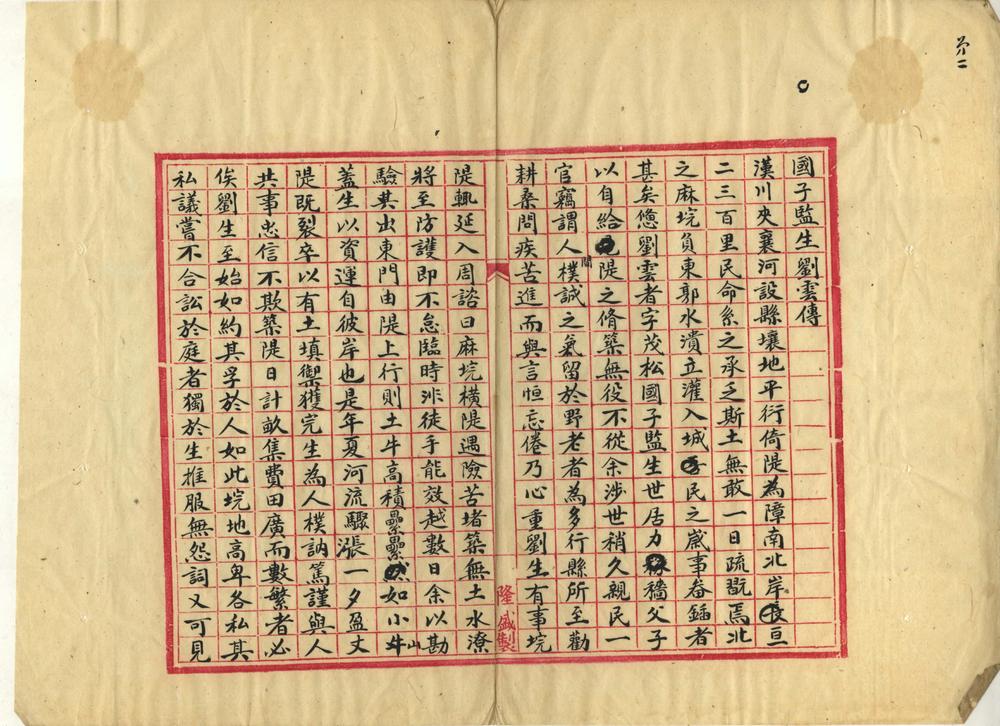 第二
國子監生劉雲傳
漢川夾襄河設縣壤地平行倚隄為障南北岸長亘
二三百里民命系之承乏斯土無敢一日疏翫焉北
之麻垸負東郭水潰立灌入城民之歲事畚鍤者
甚矣憊劉雲者字茂松國子監生世居力穡父子
以自給隄之脩築無役不從余涉世稍久親民一
官竊謂人閒樸誠之氣留於野老者為多行縣所至勸
耕桑問疾苦進而與言恒忘倦乃心重劉生有事垸
隄輒延入周諮曰麻垸橫隄遇險苦堵築無土水潦
將至防護即不怠臨時非徒手能效越數日余以勘
驗其出東門由隄上行則土牛高積纍纍如小山
蓋生以資運自彼岸也是年夏河流驟漲一夕盈丈
隄既裂卒以有土填禦獲完生為人樸訥篤謹與人
共事忠信不欺築隄日計畝集費田廣而數繁者必
俟劉生至始如約其孚於人如此垸地高卑各私其
私議嘗不合訟於庭者獨於生推服無怨詞又可見
隆盛製